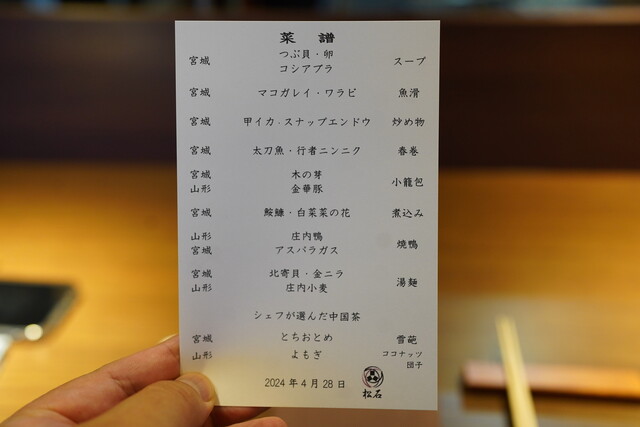 菜 譜
つぶ貝・卵
宮城 スープ
コシアブラ
宮城 マコガレイ・ワラビ 魚滑
宮城 甲イカ・スナップエンドウ 炒め物
宮城 太刀魚・行者ニンニク 春巻
宮城 木の芽
小籠包
山形 金華豚
宮城 鮟鱇・白菜菜の花 煮込み
山形 庄内鴨
焼鴨
宮城 アスパラガス
宮城 北寄貝・金ニラ
湯麺
山形 庄内小麦
シェフが選んだ中国茶
宮城 とちおとめ 雪葩
山形 よもぎ ココナッツ
団子
2024年4月28日
松石